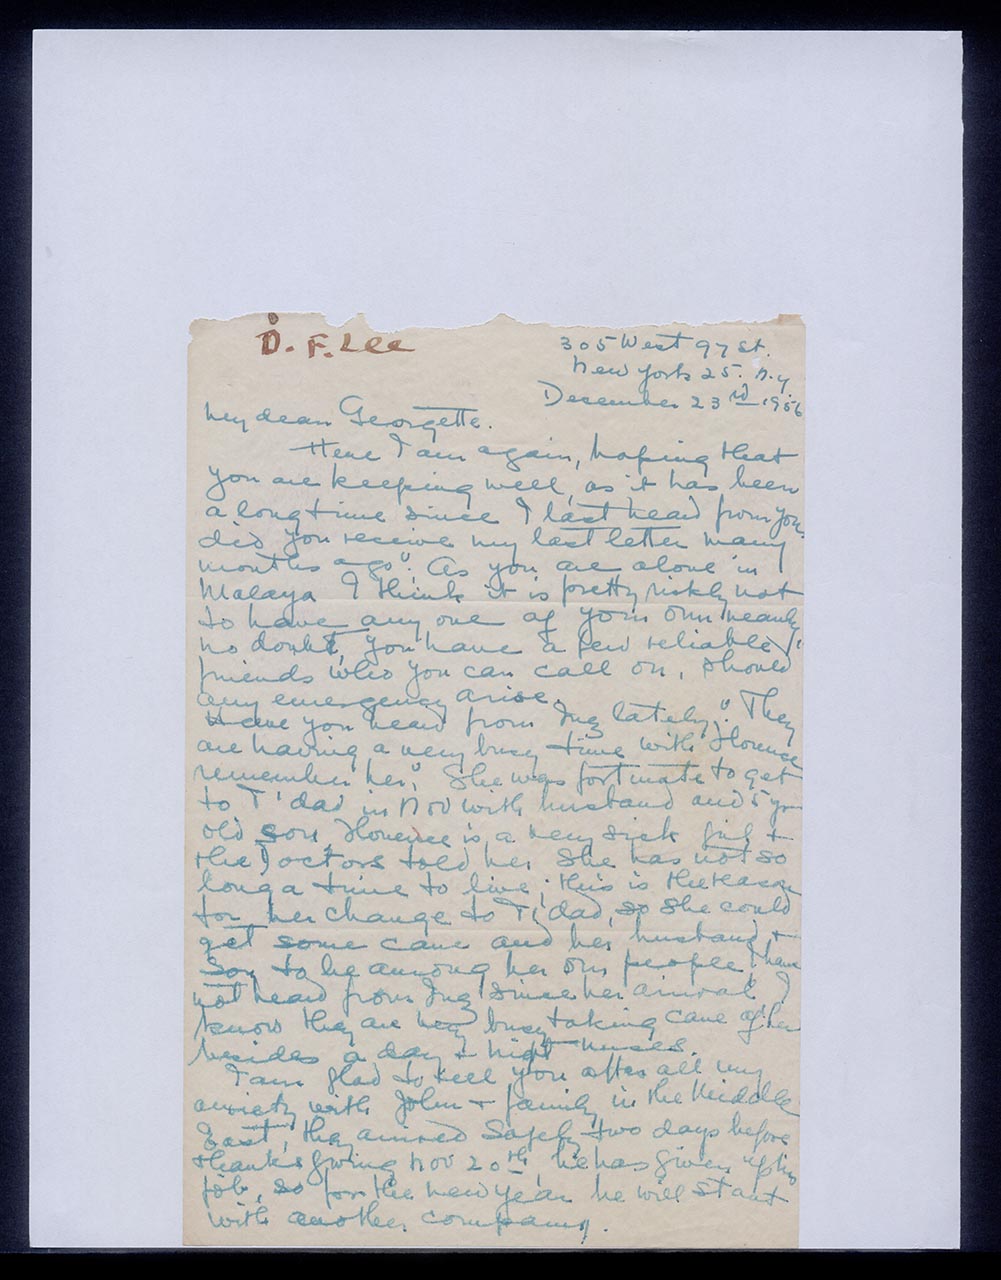 D. F. Lee
305 West 97 St.
New York 25. N.y.
December 23rd 1956
My dear Georgette.
Here I am again, hoping that
you are keeping well, as it has been
a long time since I last heard from you,
did you receive my last letter many
months ago". As you are alone in
Malaya I think it is pretty riskly not
to have any one of your own nearby
no doubt, you have a few reliable
friends who you can call on, should
any emergency arise.
Have you heard from Ing lately". They
are having a very busy time with Florence
remember her", She was fortunate to get
to T'dad in Nov with husband and 5 yr
old son, Florence is a very sick girl +
the Doctors told her she has not so
long a time to live; this is the reason
for her change to T'dad, so she could
get some care and her husband +
son to be among her own people. I have
not heard from Ing since her arrival I
know they are very busy taking care of her
besides a day + night nurses.
I am glad to tell you after all my
anxiety with John + family in the Middle
East, they arrived safely two days before
thanksgiving Nov 20th, he has given up his
job, so for the new year he will start
with another company.